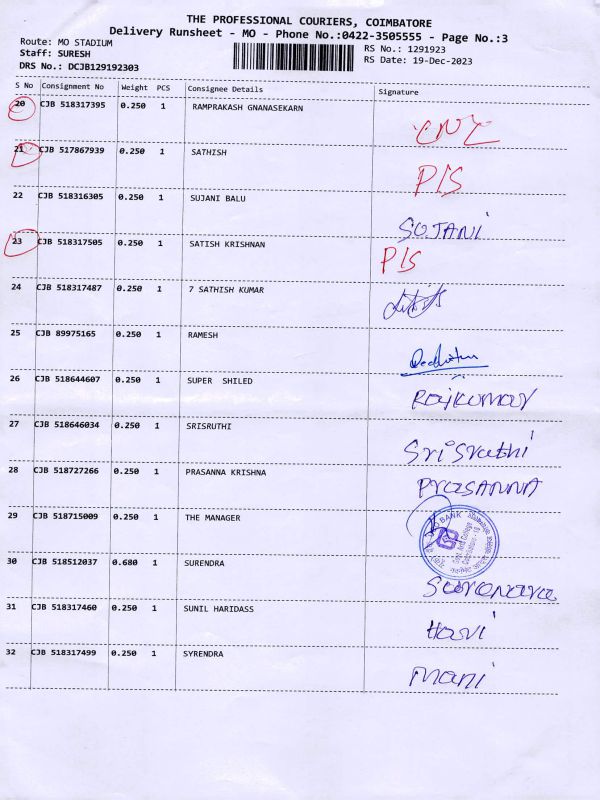 THE PROFESSIONAL COURIERS, COIMBATORE
Delivery Runsheet - MO - Phone No.:0422-3505555 - Page No.:3
Route: MO STADIUM
Staff: SURESH
DRS No.: DCJB129192303
RS No.: 1291923
RS Date: 19-Dec-2023
S No Consignment No Weight PCS Consignee Details Signature
20 CJB 518317395 0.250 1 RAMPRAKASH GNANASEKARN
21 CJB 517867939 0.250 1 SATHISH PIS
22 CJB 518316305 0.250 1 SUJANI BALU SOJANI
23 CJB 518317505 0.250 1 SATISH KRISHNAN PIS
24 CJB 518317487 0.250 1 7 SATHISH KUMAR
25 CJB 89975165 0.250 1 RAMESH
26 CJB 518644607 0.250 1 SUPER SHILED Rajkumar
27 CJB 518646034 0.250 1 SRISRUTHI Srisruthi
28 CJB 518727266 0.250 1 PRASANNA KRISHNA PraSANNA
29 CJB 518715009 0.250 1 THE MANAGER BANK
30 CJB 518512037 0.680 1 SURENDRA
31 CJB 518317460 0.250 1 SUNIL HARIDASS Hari
32 CJB 518317499 0.250 1 SYRENDRA Mani